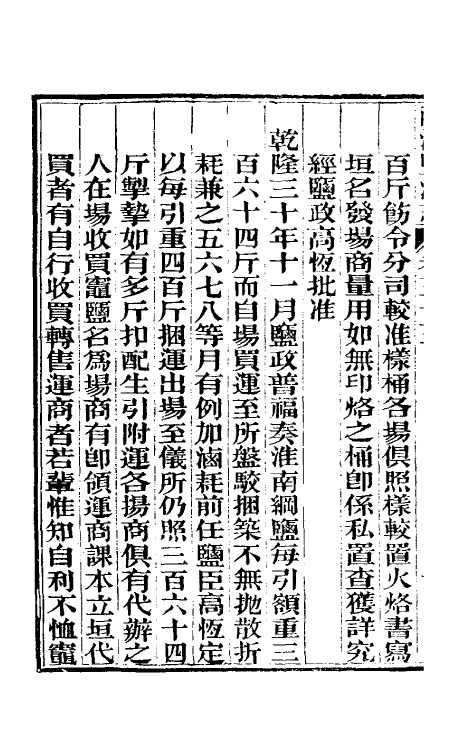 百斤飭令分司較准樣桶各場俱照樣較置火烙書寫
垣名發場商量用如無印烙之桶卽係私置查獲詳究
經鹽政高恆批准
乾隆三十年十一月鹽政普福奏淮南綱鹽每引額重三
百六十四斤而自場買運至所盤駁捆築不無拋散折
耗兼之五六七八等月有例加滷耗前任鹽臣高恆定
以每引重四百斤捆運出場至儀所仍照三百六十四
斤掣摯如有多斤扣配生引附運各場商俱有代辦之
人在場收買竈鹽名爲場商有卽領運商課本立垣代
買者有自行收買轉售運商者若輩惟知自利不恤竈